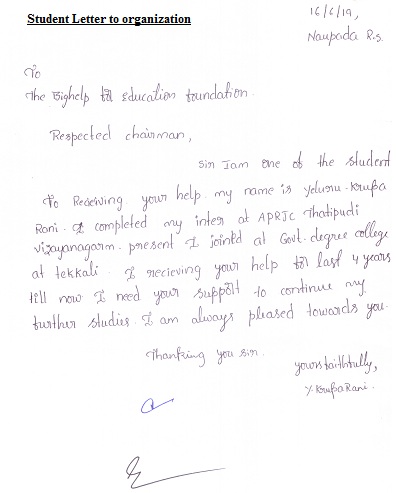 Student Letter to organization
16/6/19,
Naupada R.S.
To
The Bighelp for education foundation.
Respected chairman,
Sir I am one of the student
To Receiving your help. my name is Yelusu. Krupa
Rani. I completed my inter at APRJC Thatipudi
vizayanagarm. present I jointed at Govt. degree college
at tekkali. I recieving your help for last 4 years
till now I need your support to continue my
further studies. I am always pleased towards you.
Thanking you sir.
yours faithfully,
Y. Krupa Rani.